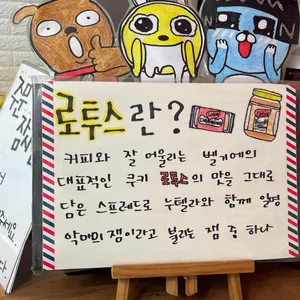 로투스란?
커피와 잘 어울리는 벨기에의
대표적인 쿠키 로투스의 맛을 그대로
담은 스프레드로 누텔라와 함께 일명
악마의 잼이라고 불리는 잼 중 하나